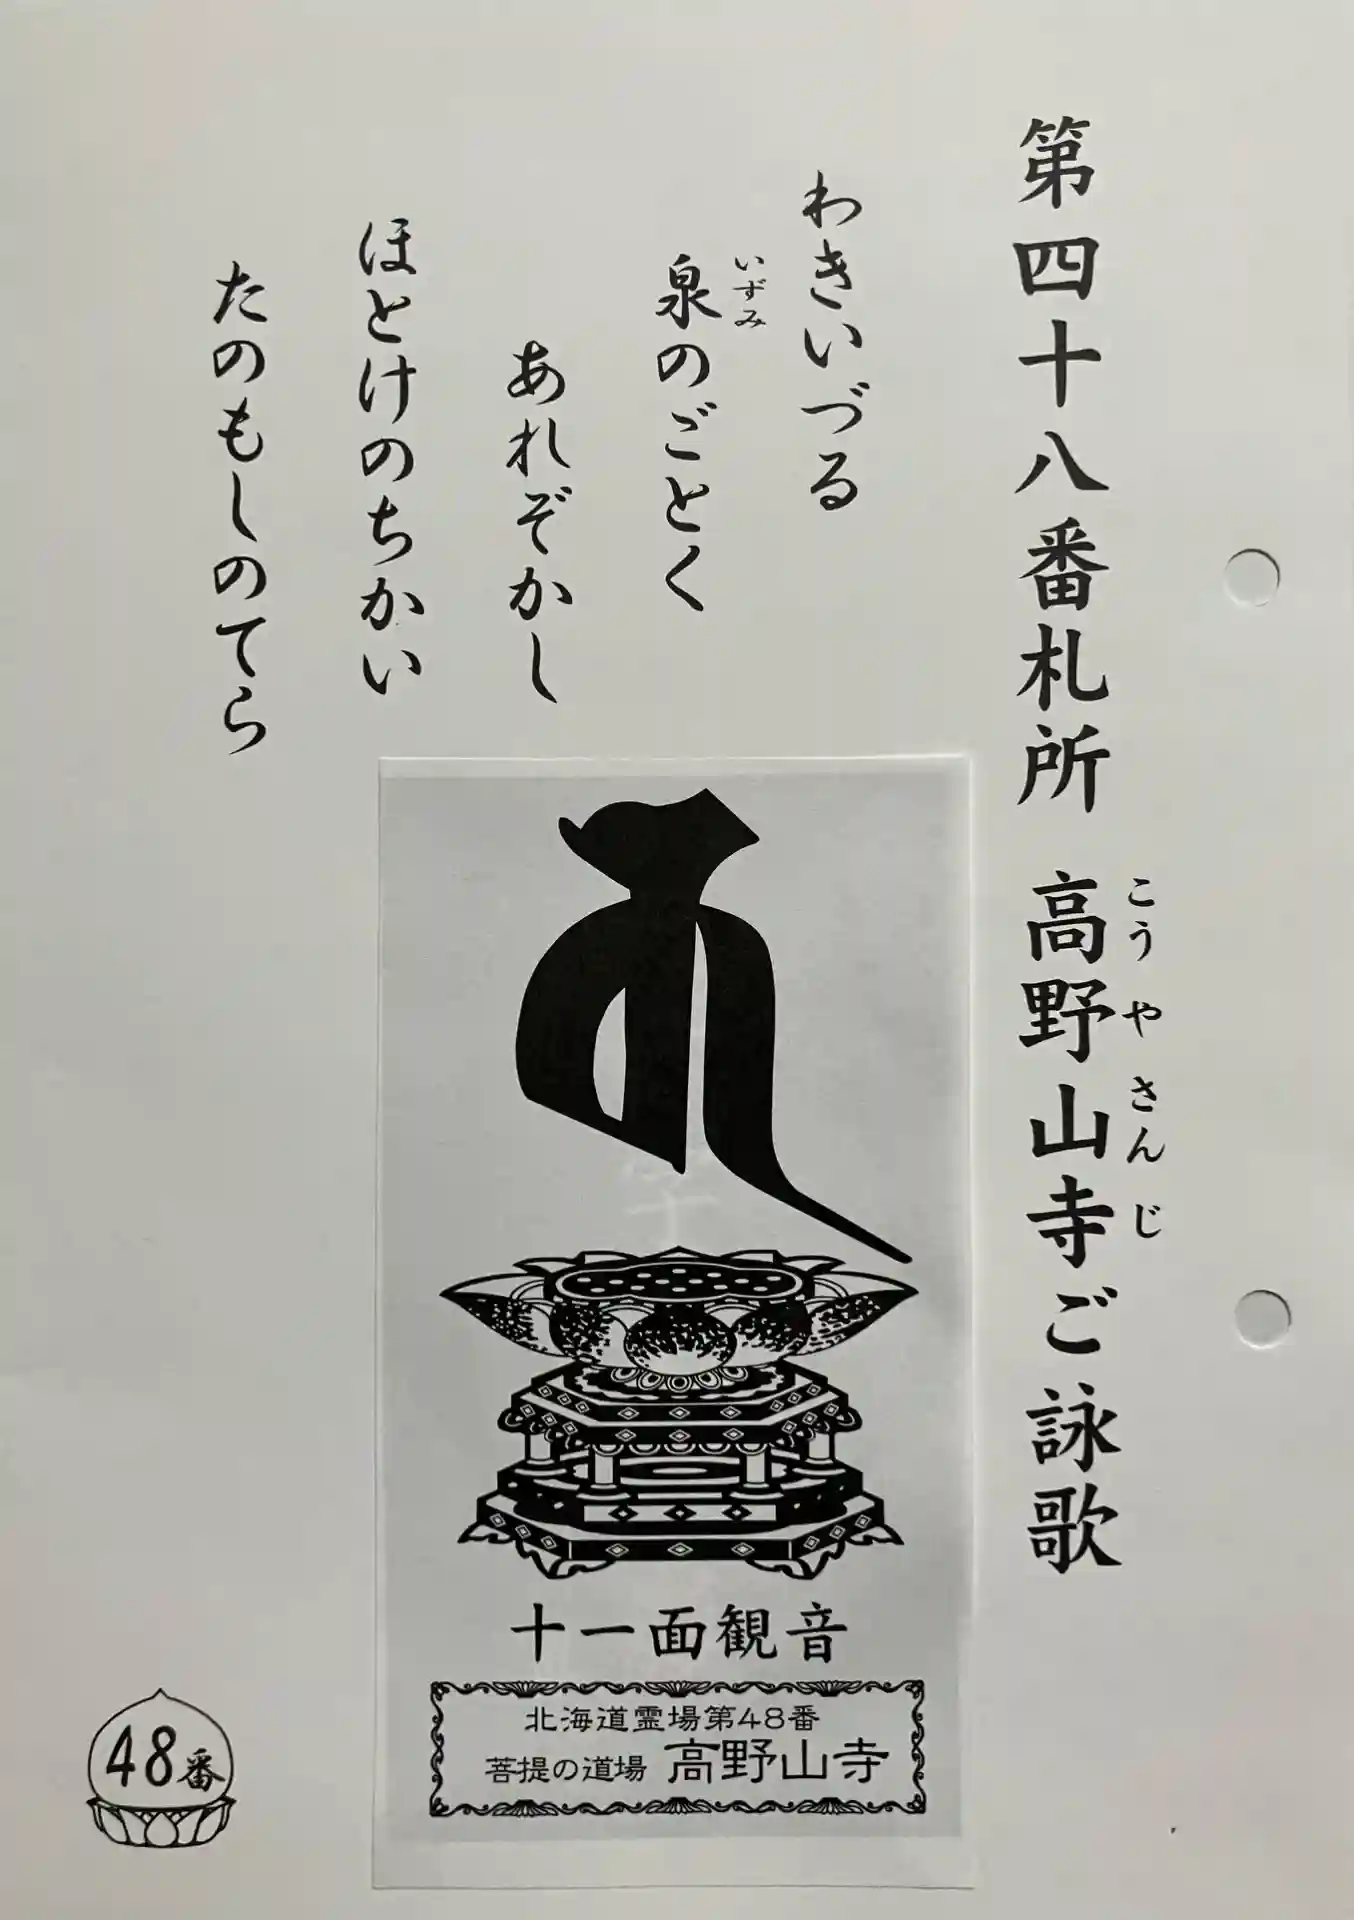 第四十八番札所 高野山寺ご詠歌
こうやさんじ
わきいづる
いずみ
泉のごとく
あれぞかし
ほとけのちかい
たのもしのてら
十一面観音
北海道霊場第48番
菩提の道場 高野山寺
48番